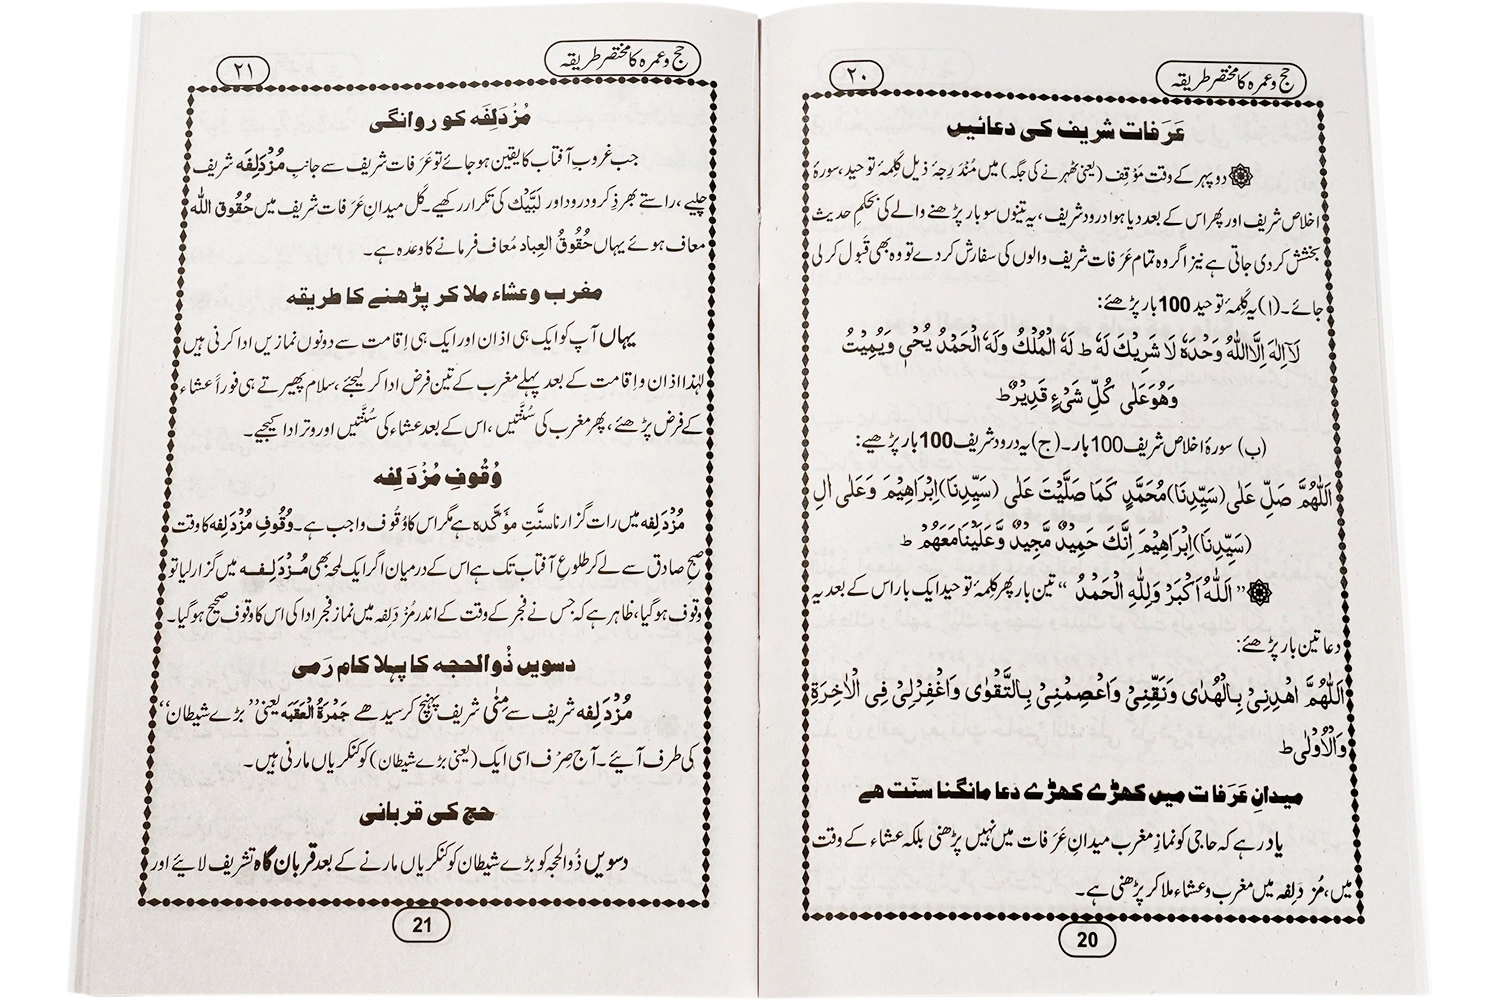 حج و عمرہ کا مختصر طریقہ
۲۰
عَرَفات شریف کی دعائیں
دوپہر کے وقت مَوْقِف (یعنی ٹھہرنے کی جگہ) میں مُنْدَرِجۂ ذیل کَلِمۂ توحید، سورۂ
اخلاص شریف اور پھر اس کے بعد دیا ہوا درود شریف، یہ تینوں سو بار پڑھنے والے کی بحکمِ حدیث
بخشش کر دی جاتی ہے نیز اگر وہ تمام عَرَفات شریف والوں کی سفارش کر دے تو وہ بھی قَبول کر لی
جائے۔ (ا) یہ کَلِمۂ توحید 100 بار پڑھئے:
لَآ اِلٰهَ اِلَّا اللّٰهُ وَحْدَهٗ لَا شَرِيْكَ لَهٗ ط لَهُ الْمُلْكُ وَلَهُ الْحَمْدُ يُحْيٖ وَيُمِيْتُ
وَهُوَ عَلٰى كُلِّ شَیْءٍ قَدِيْرٌ ط
(ب) سورۂ اخلاص شریف 100 بار۔ (ج) یہ درود شریف 100 بار پڑھیے:
اَللّٰهُمَّ صَلِّ عَلٰى (سَيِّدِنَا) مُحَمَّدٍ كَمَا صَلَّيْتَ عَلٰى (سَيِّدِنَا) اِبْرَاهِيْمَ وَعَلٰى اٰلِ
(سَيِّدِنَا) اِبْرَاهِيْمَ اِنَّكَ حَمِيْدٌ مَّجِيْدٌ وَّعَلَيْنَا مَعَهُمْ ط
”اَللّٰهُ اَكْبَرُ وَلِلّٰهِ الْحَمْدُ“ تین بار پھر کَلِمۂ توحید ایک بار اس کے بعد یہ
دعا تین بار پڑھئے:
اَللّٰهُمَّ اهْدِنِيْ بِالْهُدٰى وَنَقِّنِيْ وَاعْصِمْنِيْ بِالتَّقْوٰى وَاغْفِرْلِيْ فِي الْاٰخِرَةِ
وَالْاُوْلٰى ط
میدانِ عَرَفات میں کھڑے کھڑے دعا مانگنا سنّت ہے
یاد رہے کہ حاجی کو نمازِ مغرب میدانِ عَرَفات میں نہیں پڑھنی بلکہ عشاء کے وقت
میں، مُزدَلِفہ میں مغرب و عشاء ملا کر پڑھنی ہے۔
20
حج و عمرہ کا مختصر طریقہ
۲۱
مُزْدَلِفَہ کو روانگی
جب غروبِ آفتاب کا یقین ہو جائے تو عَرَفات شریف سے جانبِ مُزْدَلِفَہ شریف
چلیے، راستے بھر ذِکر و درود اور لَبَّیْک کی تکرار رکھیے۔ کل میدانِ عَرَفات شریف میں حُقُوقُ اللّٰہ
معاف ہوئے یہاں حُقُوقُ العِباد مُعاف فرمانے کا وعدہ ہے۔
مغرب و عشاء ملا کر پڑھنے کا طریقہ
یہاں آپ کو ایک ہی اذان اور ایک ہی اِقامت سے دونوں نمازیں ادا کرنی ہیں
لہٰذا اذان و اِقامت کے بعد پہلے مغرب کے تین فرض ادا کر لیجئے، سلام پھیرتے ہی فوراً عشاء
کے فرض پڑھئے، پھر مغرب کی سُنَّتیں، اس کے بعد عشاء کی سُنَّتیں اور وتر ادا کیجیے۔
وُقُوفِ مُزْدَلِفہ
مُزْدَلِفہ میں رات گزارنا سنّتِ مؤکّدہ ہے مگر اس کا وُقُوف واجب ہے۔ وُقُوفِ مُزْدَلِفہ کا وقت
صبحِ صادق سے لے کر طلوعِ آفتاب تک ہے اس کے درمیان اگر ایک لمحہ بھی مُزْدَلِفہ میں گزار لیا تو
وقوف ہو گیا، ظاہر ہے کہ جس نے فجر کے وقت کے اندر مُزدَلِفہ میں نمازِ فجر ادا کی اس کا وقوف صحیح ہو گیا۔
دسویں ذُوالحجہ کا پہلا کام رَمی
مُزْدَلِفہ شریف سے مِنٰی شریف پہنچ کر سیدھے جَمْرَۃُ الْعَقَبَہ یعنی ”بڑے شیطان“
کی طرف آیئے۔ آج صِرف اسی ایک (یعنی بڑے شیطان) کو کنکریاں مارنی ہیں۔
حج کی قربانی
دسویں ذُوالحجہ کو بڑے شیطان کو کنکریاں مارنے کے بعد قربان گاہ تشریف لائیے اور
21